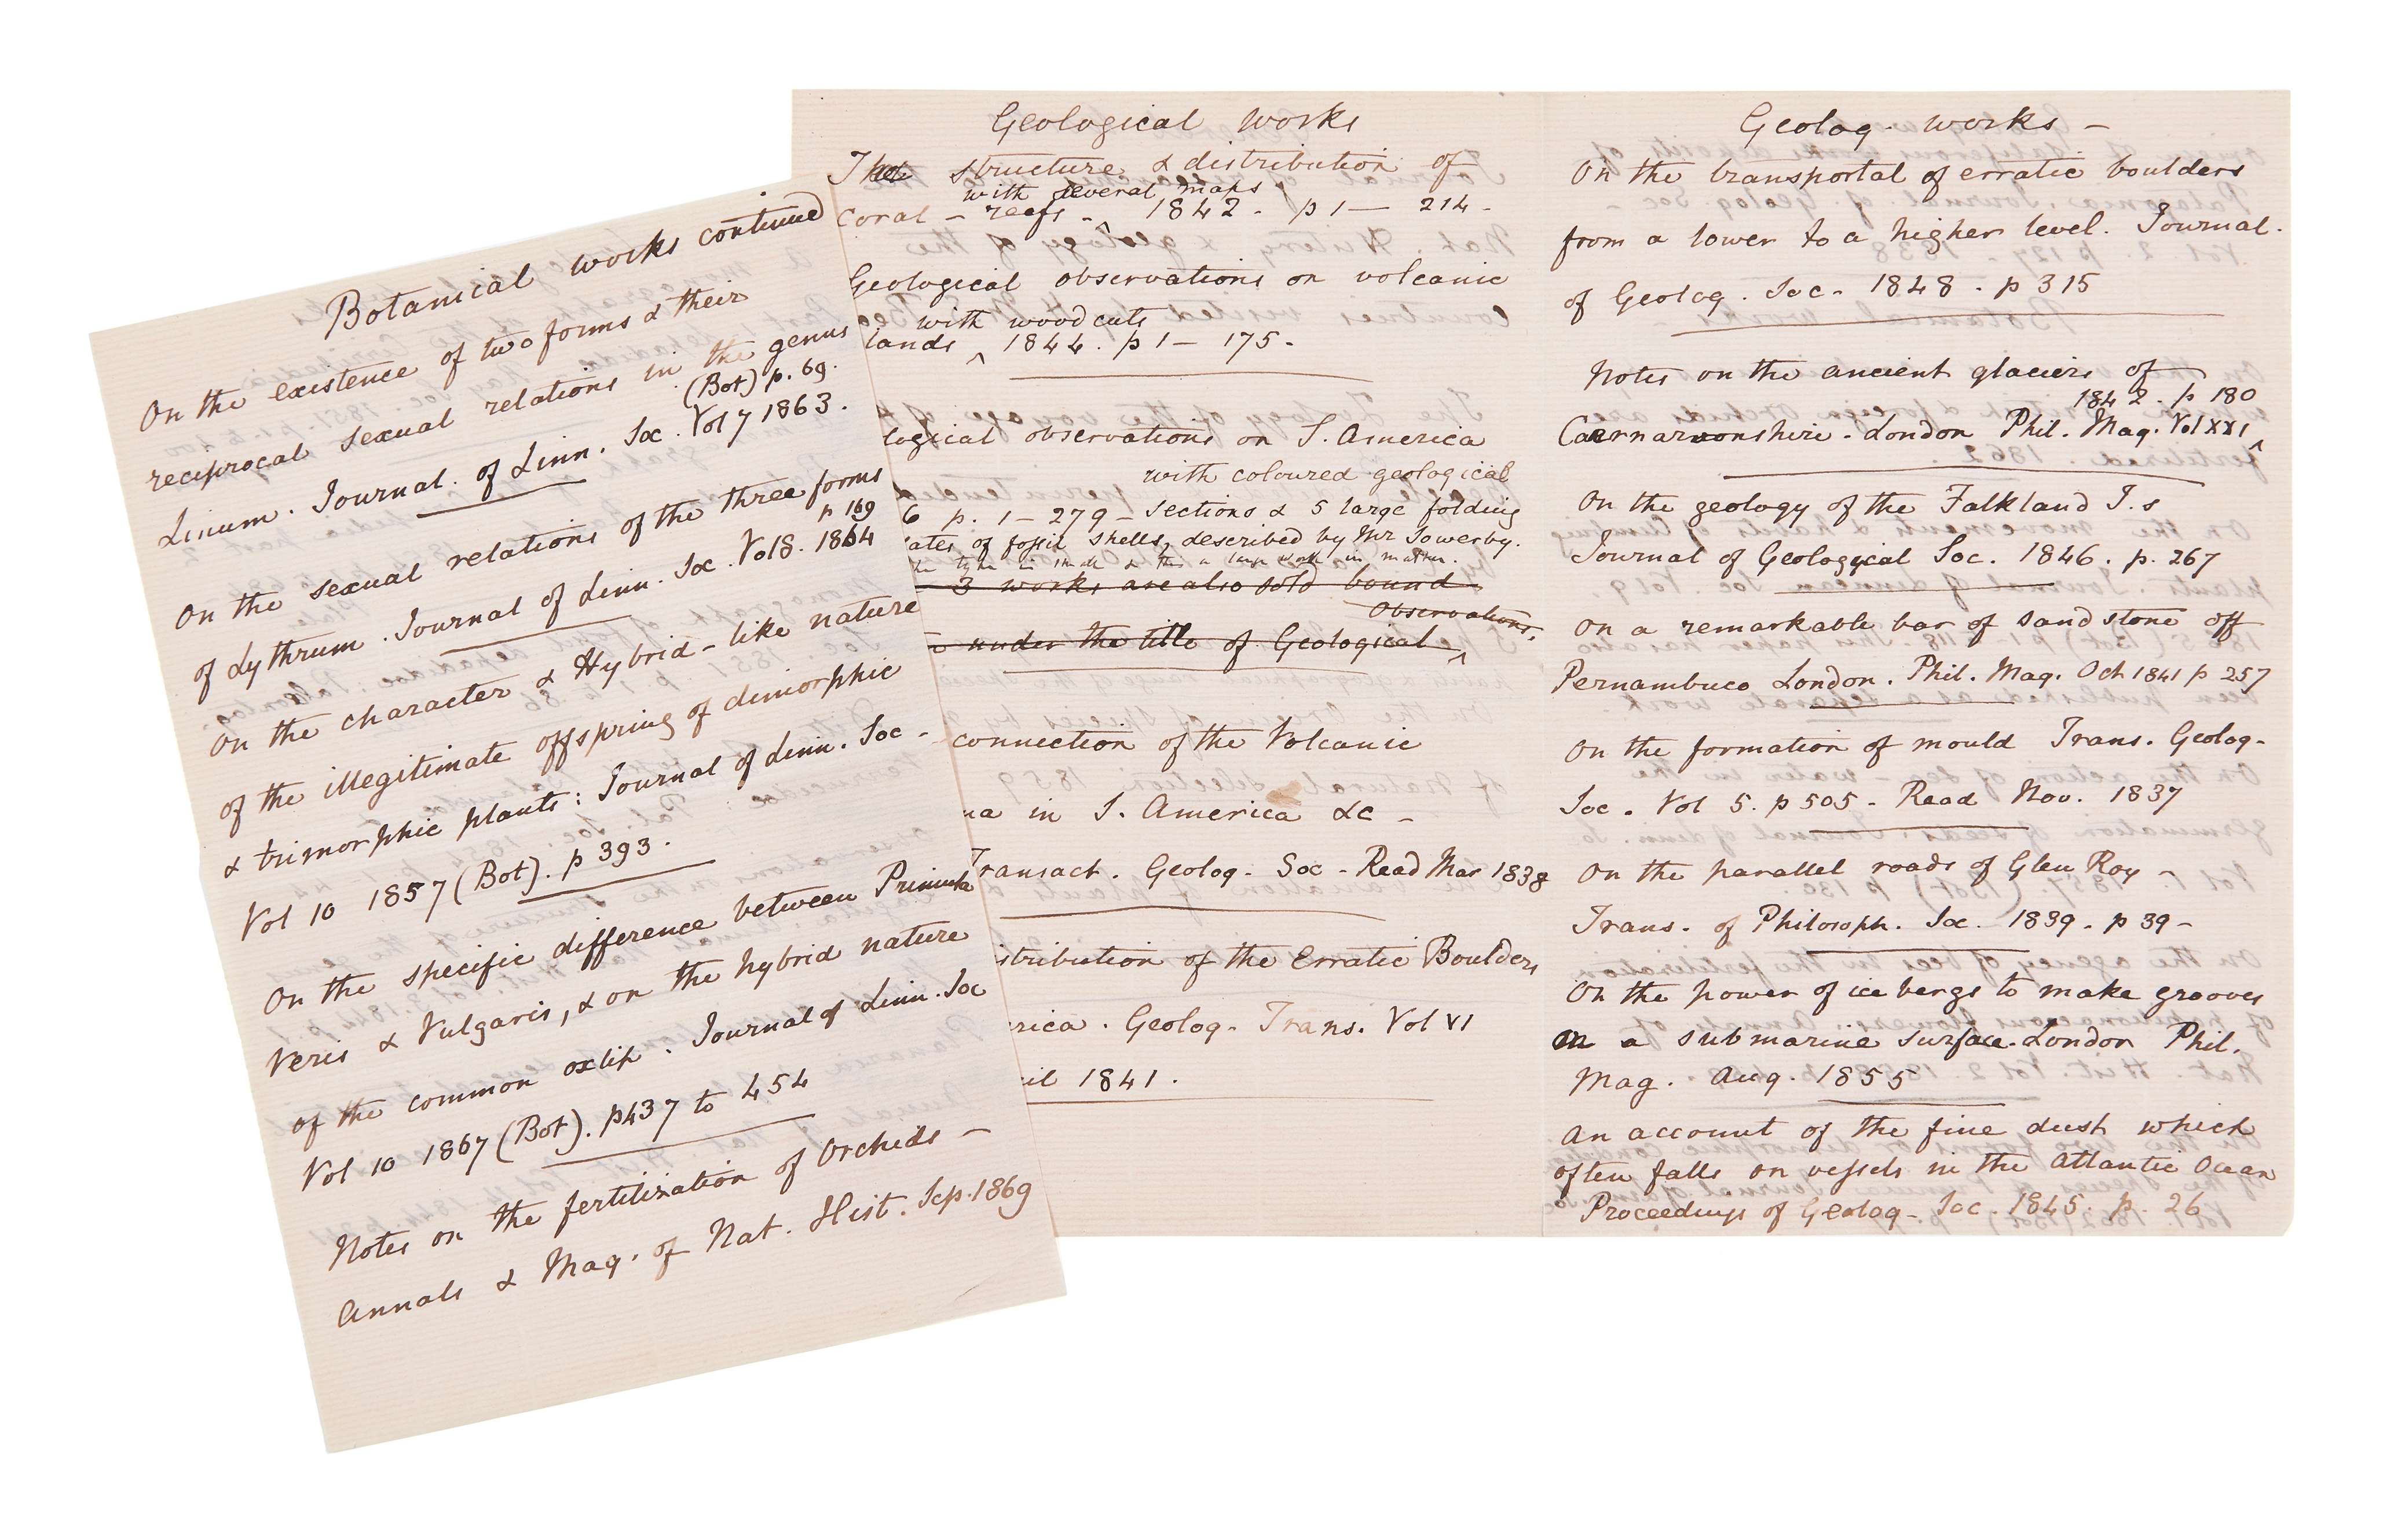 Botanical works continued
On the existence of two forms & their
reciprocal sexual relations in the genus
(Bot) p. 69.
Linum. Journal. of Linn. Soc. Vol 7 1863.
On the sexual relations of the three forms
p 169
of Lythrum. Journal of Linn. Soc. Vol 8. 1864
On the character & Hybrid-like nature
of the illegitimate offspring of dimorphic
& trimorphic plants: Journal of Linn. Soc -
Vol 10 1857 (Bot). p 393.
On the specific difference between Primula
Veris & Vulgaris, & on the hybrid nature
of the common oxlip. Journal of Linn. Soc
Vol 10 1867 (Bot). p437 to 454
Notes on the fertilization of Orchids -
Annals & Mag. of Nat. Hist. Sep. 1869
Geological works
The structure & distribution of
with several maps
Coral-reefs - ^ 1842. p 1 — 214.
Geological observations on volcanic
with woodcuts
lands ^ 1844. p 1 — 175.
logical observations on S. America
with coloured geological
6 p. 1 — 279 — sections & 5 large folding
ates of fossil shells, described by Mr Sowerby.
he type is small & this a large work in matter.
3 works are also sold bound
Observations.
under the title of Geological ^
connection of the Volcanic
na in S. America &c -
Transact. Geolog. Soc - Read Mar 1838
istribution of the Erratic Boulders
rica. Geolog. Trans. Vol VI
il 1841.
Geolog. works -
On the transportal of erratic boulders
from a lower to a higher level. Journal.
of Geolog. Soc. 1848. p 315
Notes on the ancient glaciers of
1842. p 180
Caernarvonshire. London Phil. Mag. Vol XXI ^
On the geology of the Falkland I.s
Journal of Geological Soc. 1846. p. 267
On a remarkable bar of Sandstone off
Pernambuco London. Phil. Mag. Oct 1841 p 257
On the formation of mould Trans. Geolog.
Soc. Vol 5. p 505 - Read Nov. 1837
On the parallel roads of Glen Roy -
Trans. of Philosoph. Soc. 1839. p 39 -
On the power of icebergs to make grooves
on a submarine surface. London Phil.
Mag. Aug. 1855
An account of the fine dust which
often falls on vessels in the Atlantic Ocean
Proceedings of Geolog. Soc. 1845. p. 26